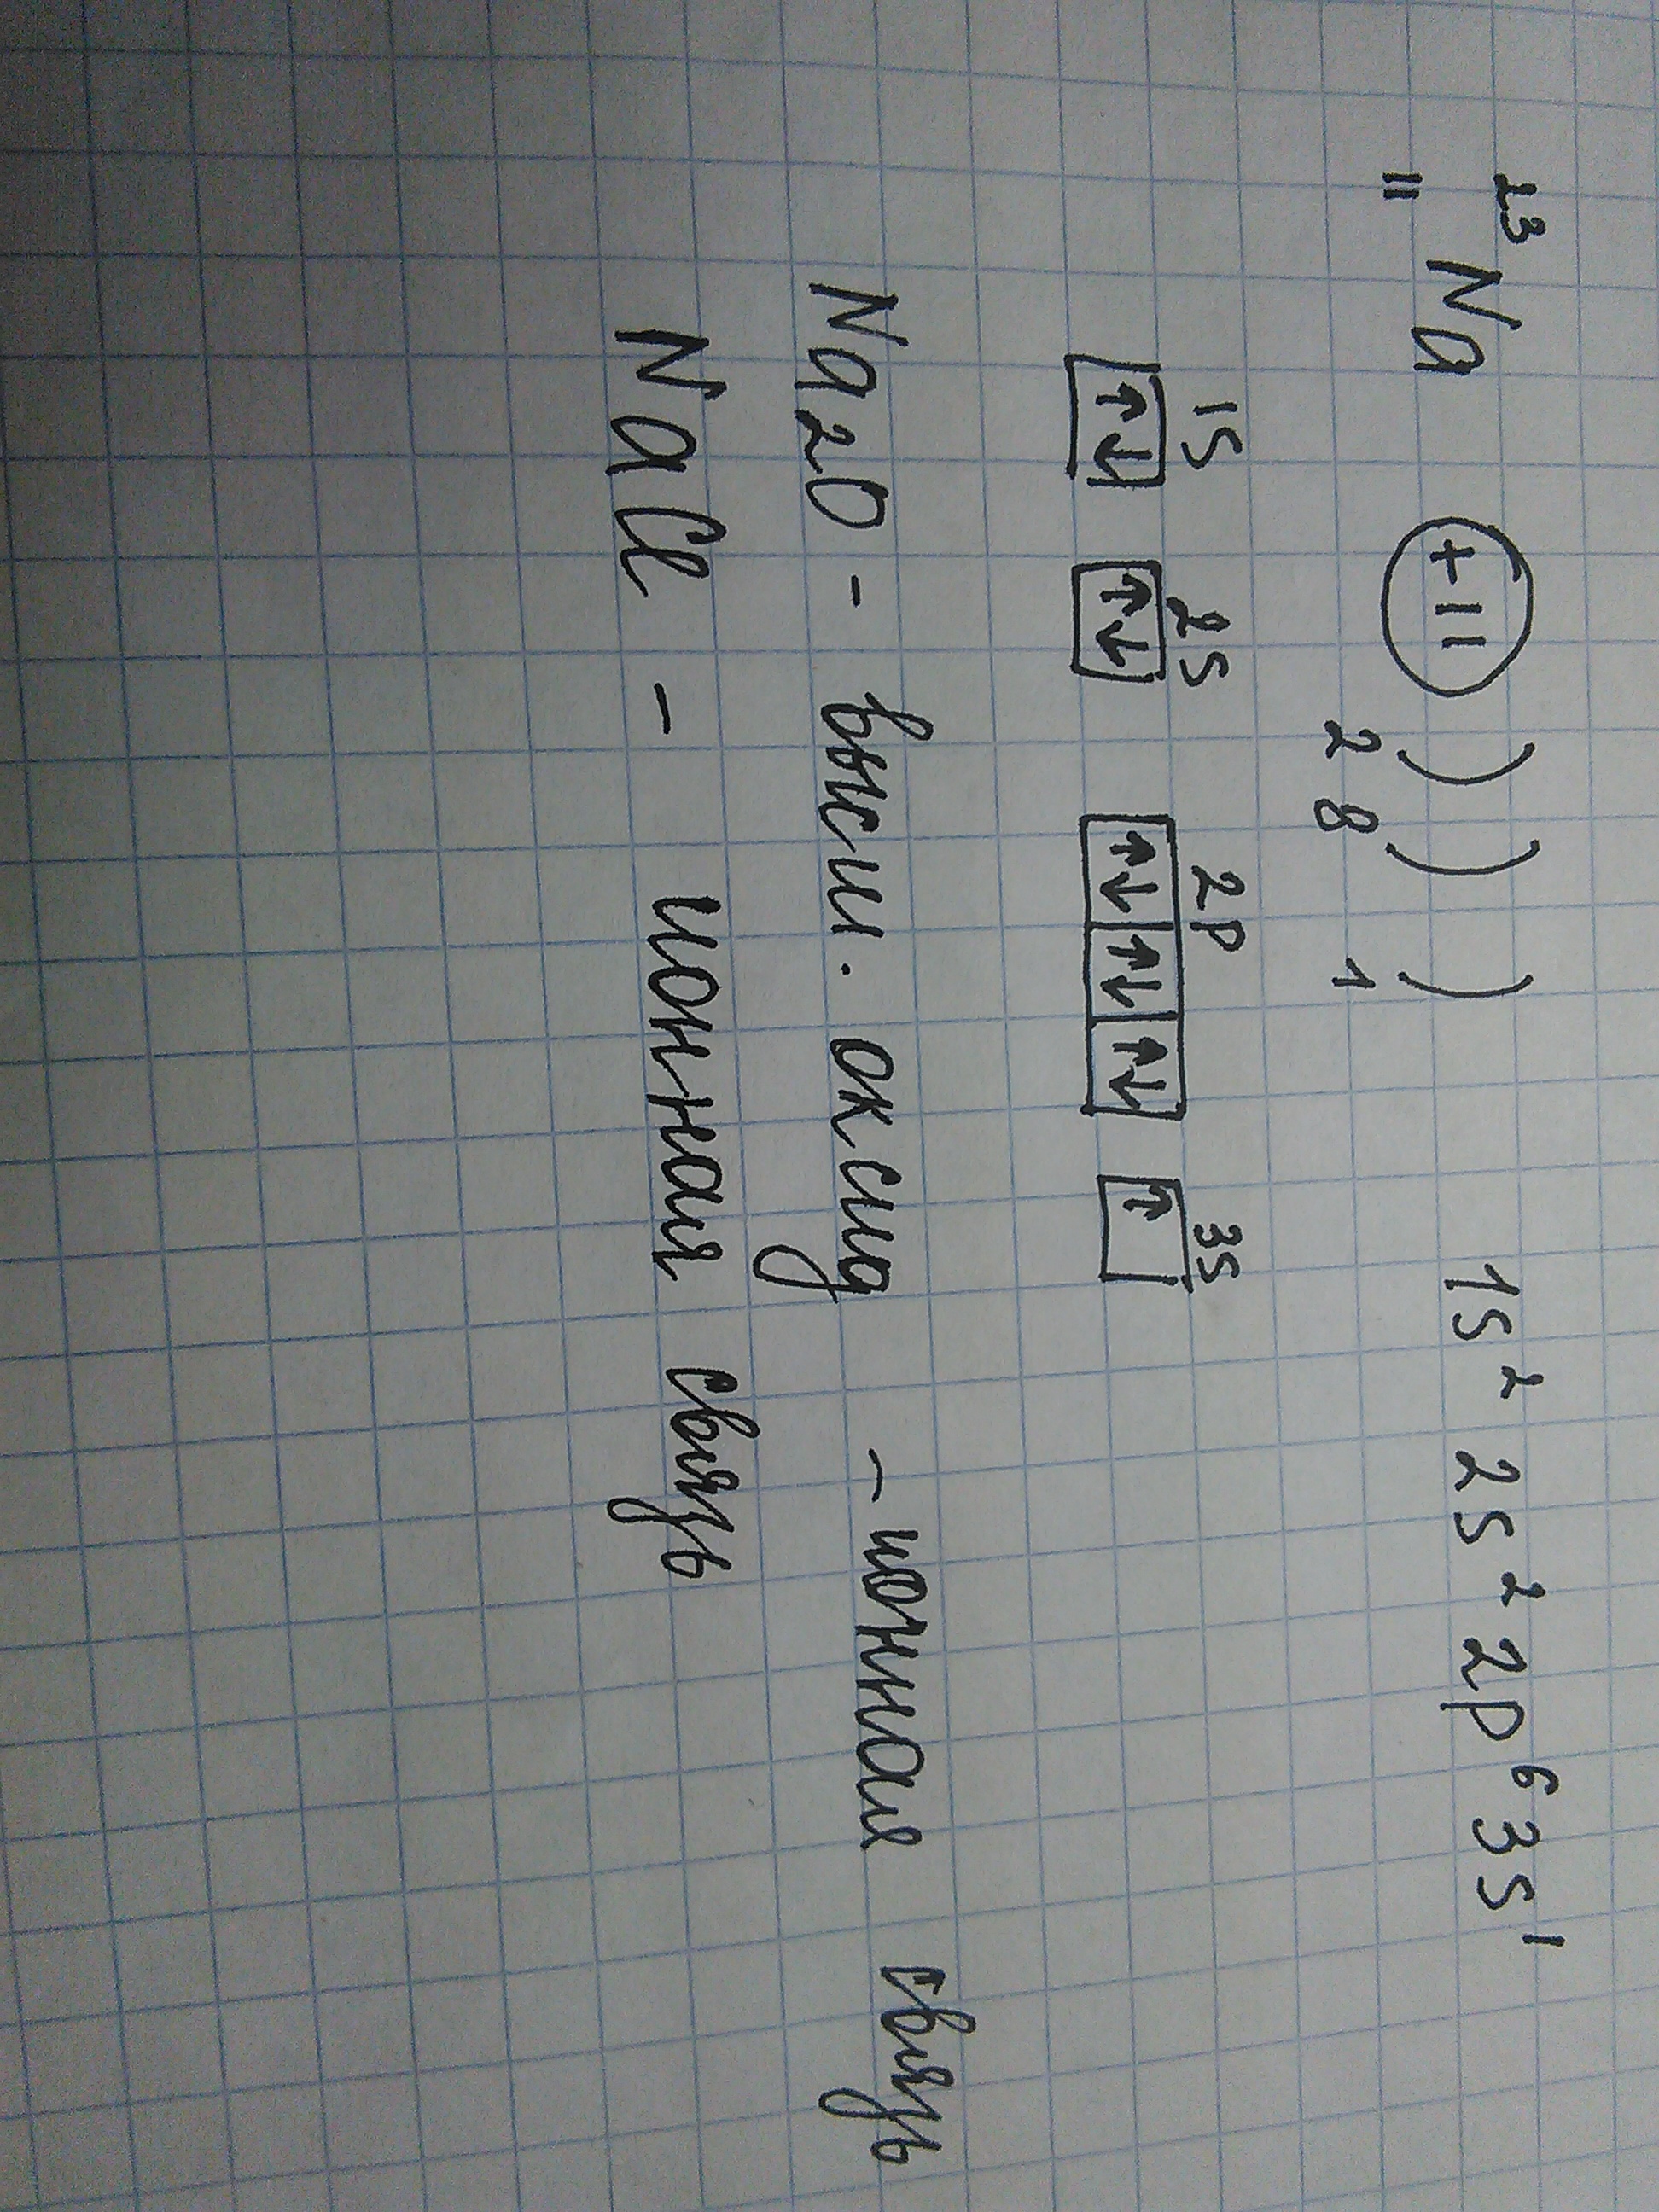 23 Na +11 ) ) ) 1s² 2s² 2p⁶ 3s¹
11 2 8 1
1s 2s 2p 3s
↑↓ ↑↓ ↑↓ ↑↓ ↑↓ ↑
Na2O - высш. оксид - ионная связь
NaCl - ионная связь